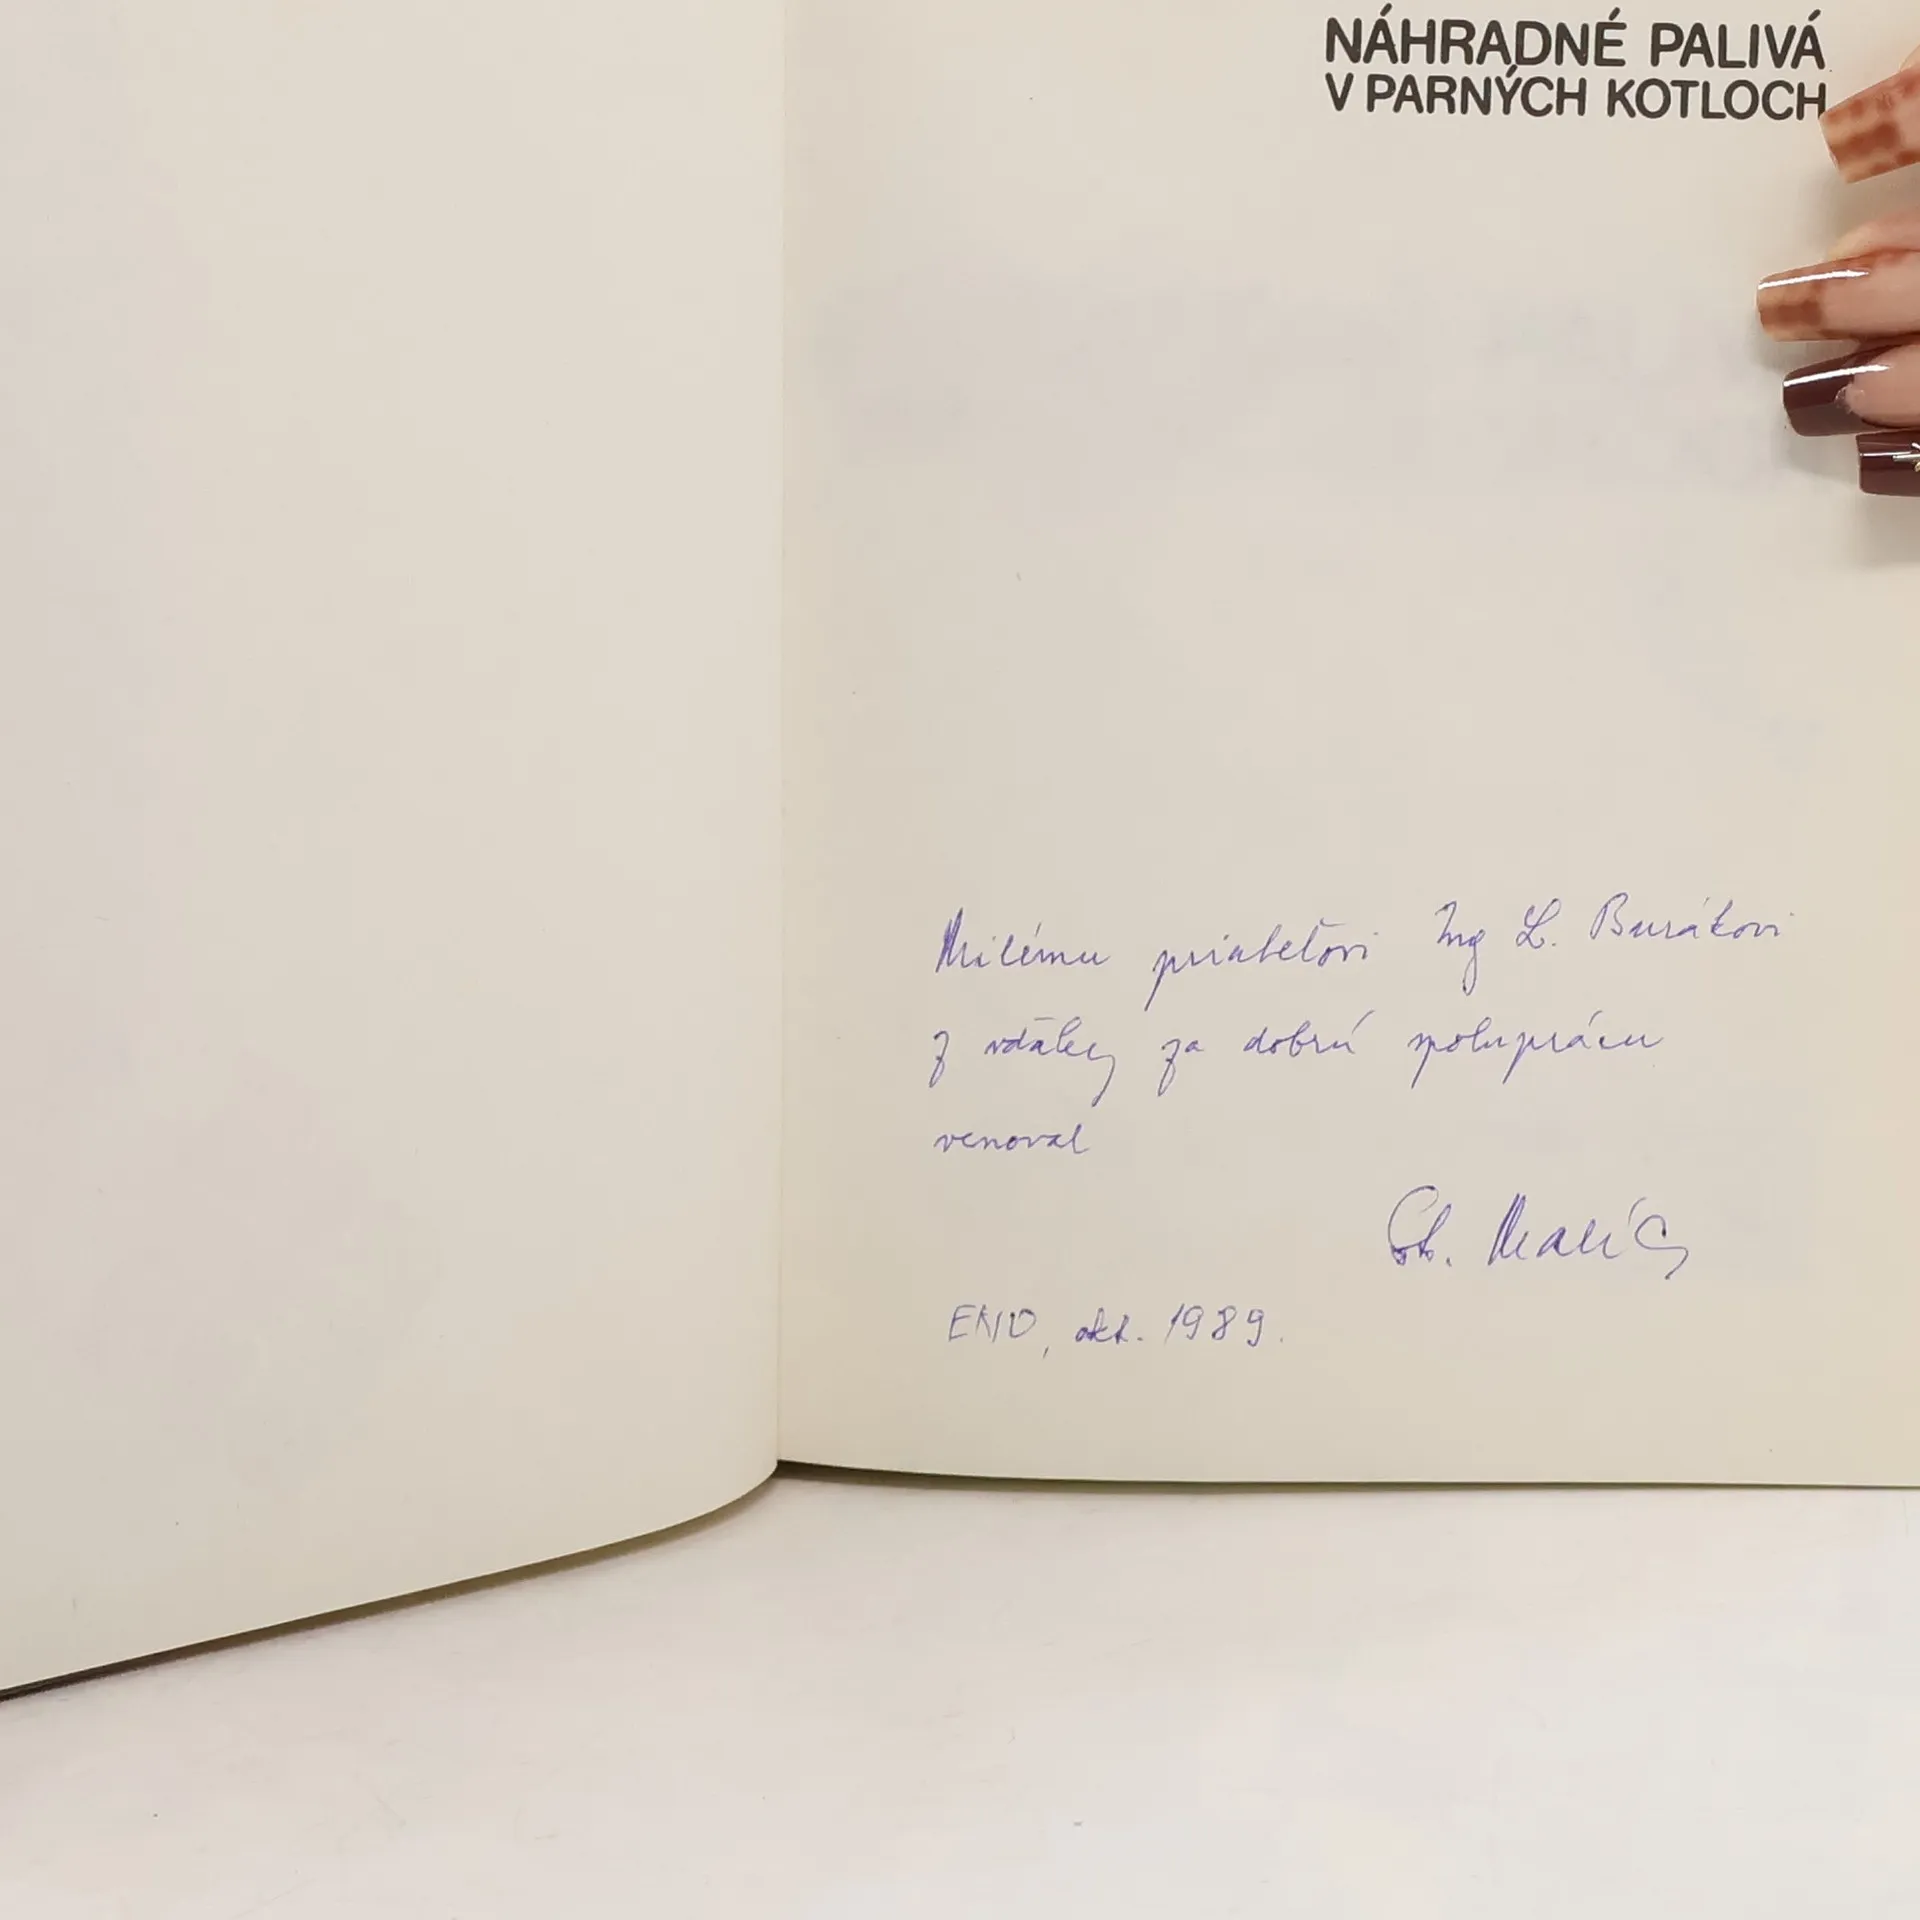 NÁHRADNÉ PALIVÁ
V PARNÝCH KOTLOCH
Milému priateľovi Ing L. Burákovi
z vďaky za dobrú spoluprácu
venoval
ENO, okt. 1989.